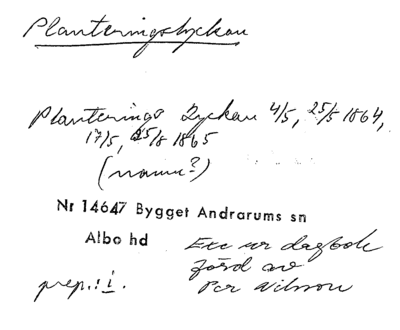 Planteringslyckan
Planterings Lyckan 4/5, 25/5 1864,
17/5, 25/8 1865
(namn?)
Nr 14647 Bygget Andrarums sn
Albo hd
Exc ur dagbok
förd av
Per Nilsson
prep.: i.